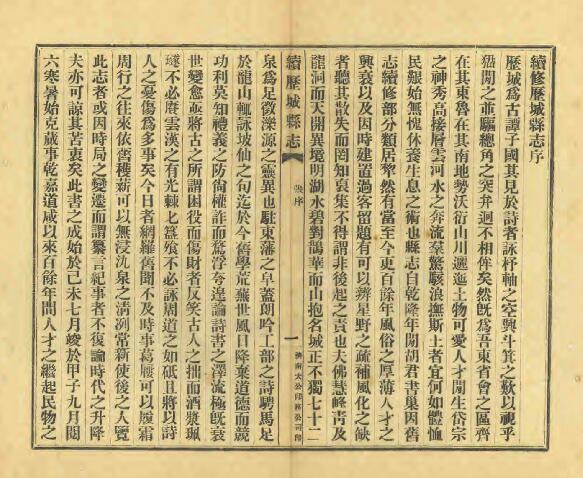 續修歷城縣志序
歷城爲古譚子國其見於詩者詠杼軸之空興斗箕之歎以視乎
猺閒之並驅總角之突弁迥不相侔矣然旣爲吾東省會之區齊
在其東魯在其南地勢沃衍山川邐迤土物可愛人才閒生岱宗
之神秀高接層雲河水之奔流羣驚駭浪撫斯土者宜何如體恤
民艱始無愧休養生息之術也縣志自乾隆年閒胡君書巢因舊
志續修部分類居犂然有當至今更百餘年風俗之厚薄人才之
興衰以及因時建置過客留題有可以辨星野之疏補風化之缺
者聽其散失而罔知裒集不得謂非後起之責也夫佛慧峰靑及
龍洞而天開異境明湖水碧對鵲華而山抱名城正不獨七十二
續歷城縣志
敍序
一
濟南大公印務公司印
泉爲足徵濼源之靈異也駐東藩之皁蓋朗吟工部之詩騁馬足
於龍山輒詠坡仙之句迄於今舊學荒蕪世風日降棄道德而競
功利莫知禮義之防尙權詐而騖浮夸遑論詩書之澤流極旣衰
世變愈亟將古之所謂困役而傷財者反笑古人之拙而酒漿珮
璲不必賡雲漢之有光棘匕簋飧不必詠周道之如砥且將以詩
人之憂傷爲多事矣今日者網羅舊聞不及時事葛屨可以履霜
周行之往來依舊穫薪可以無浸氿泉之淸冽常新使後之人覽
此志者或因時局之變遷而謂纂言紀事者不復論時代之升降
夫亦可諒其苦衷矣此書之成始於己未七月竣於甲子九月閱
六寒暑始克蕆事乾嘉道咸以來百餘年間人才之繼起民物之